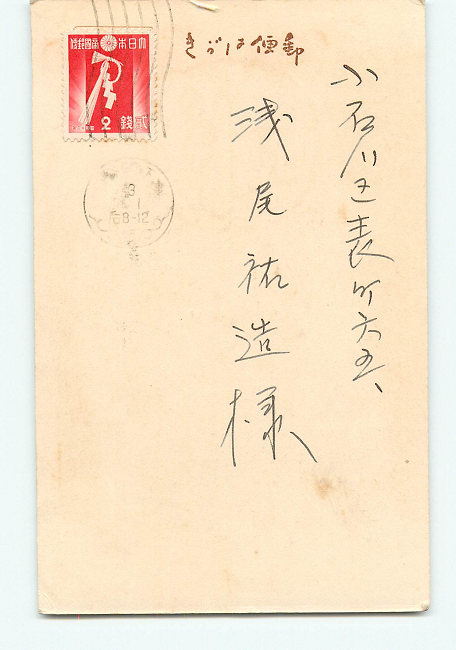 郵便はがき
小石川区表町六五、
浅尾祐造様
大日本帝國郵便
貳錢
2
13
1
后8-12